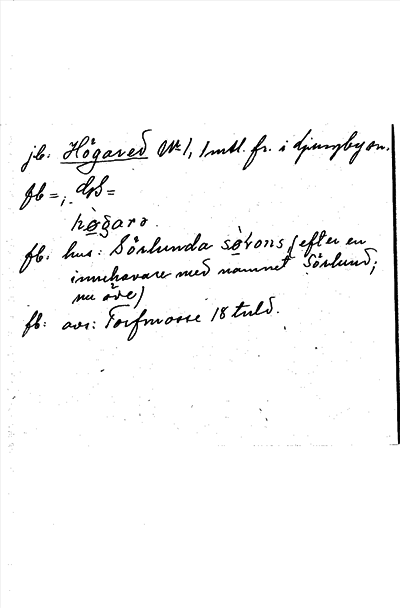 jb: Högared No 1, 1 mtl. fr. i Ljungby sn.
fb =; dsS =
hø̀garə.
fb: hus: Sörlunda sø̀rons (efter en
innehavare med namnet Sörlund;
nu öde)
fb: avs: Torfmosse 18 tnld.